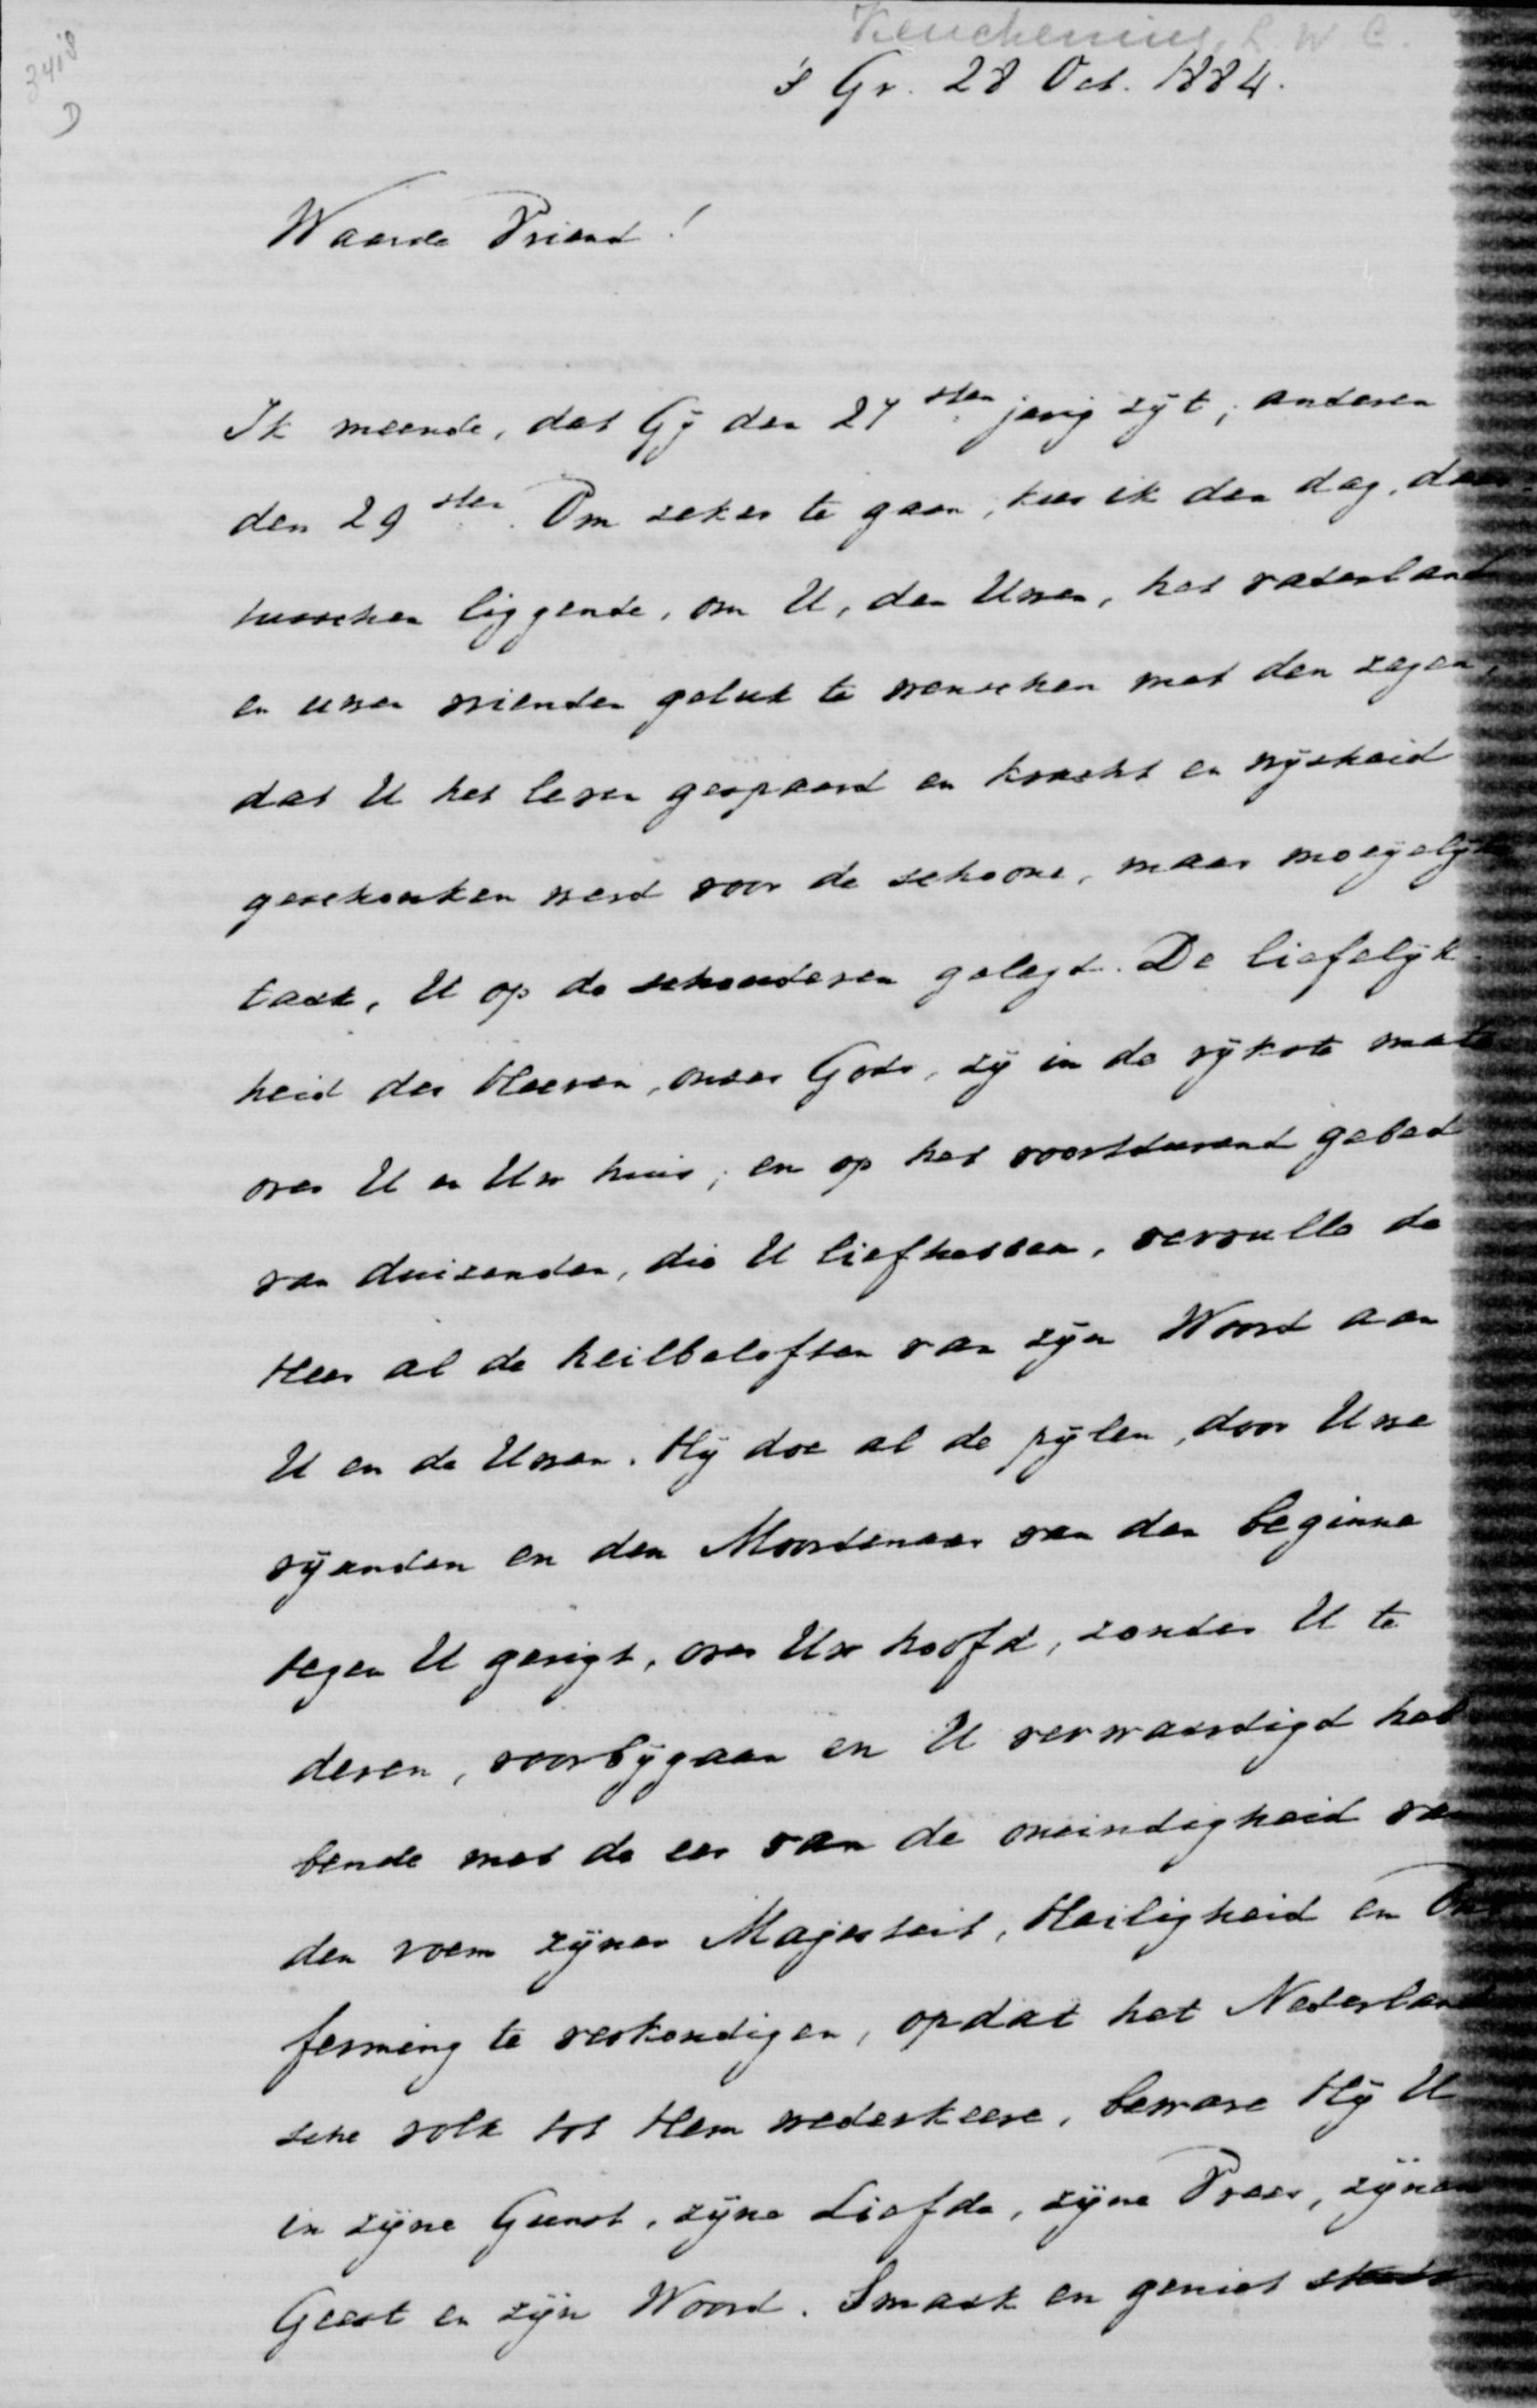 Keuchenius, L. W. C.
3418
D
's Gr. 28 Oct. 1884.
Waarde Vriend!
Ik meende, dat Gij den 27sten jarig zijt; anderen
den 29sten. Om zeker te gaan, kies ik den dag, daar-
tusschen liggende, om U, den Uwen, het vaderland
en uwen vrienden geluk te wenschen met den zegen,
dat U het leven gespaard en kracht en wijsheid
geschonken werd voor de schoone, maar moeijelijke
taak, U op de schouderen gelegd. De liefelijk-
heid des Heeren, onzes Gods, zij in de rijkste mate
over U en Uw huis; en op het voortdurend gebed
van duizenden, die U liefhebben, vervulle de
Heer al de heilbeloften van zijn Woord aan
U en de Uwen. Hij doe al de pijlen, door Uwe
vijanden en den Moordenaar van den beginne
tegen U gerigt, over Uw hoofd, zonder U te
deren, voorbijgaan en U verwaardigd heb-
bende met de eer van de oneindigheid van
den roem zijner Majesteit, Heiligheid en Ont
ferming te verkondigen, opdat het Nederland
sche volk tot Hem wederkeere, beware Hij U
in zijne Gunst, zijne Liefde, zijne Vrees, zijnen
Geest en zijn Woord. Smaak en geniet steeds